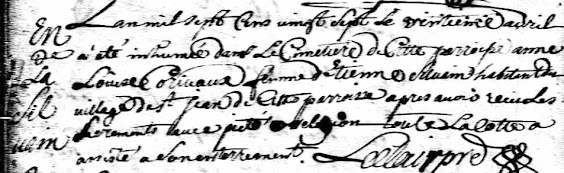 L'an mil sept cens vingt sept le vintieme avril
a été inhumée dans le Cimetiere de Cette parroise anne
Louise femme d'Etienne habitent du
village de St Jean de Cette parroise apres avoir recu les
sacrements avec pieté et religion toute La Cotte a
assisté a son enterrement. Leclair ptre